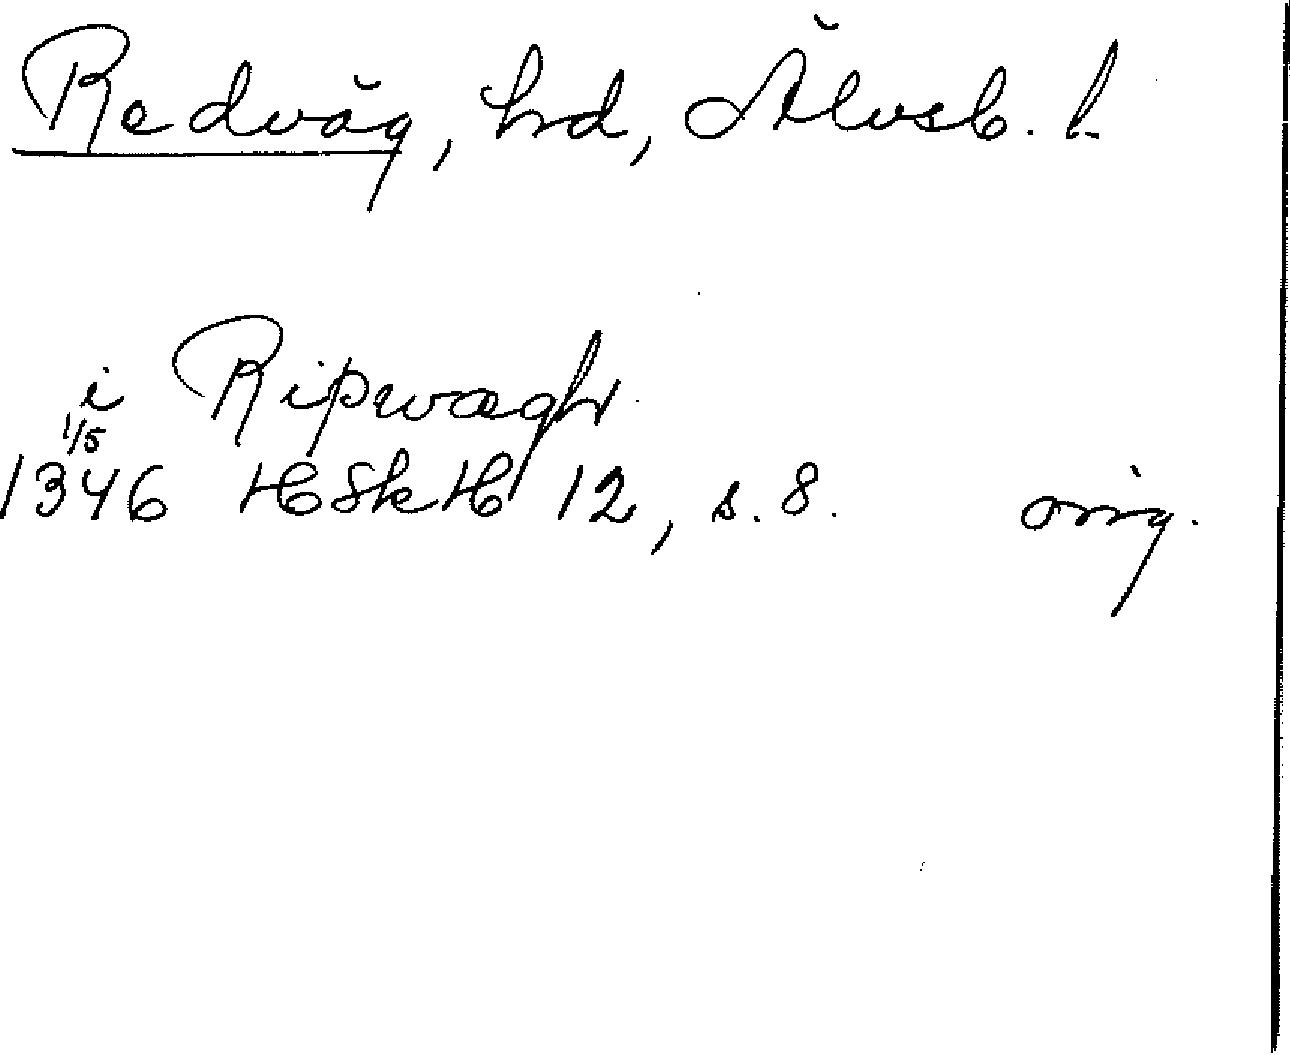 Redväg, hd, Älvsb. l.
i Riþwægh
1/5
1346 HSkH 12, s. 8. orig.